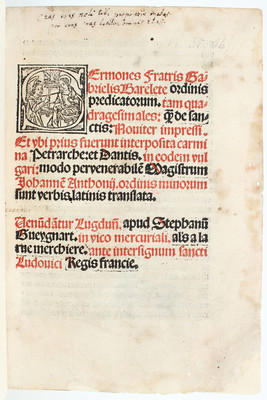 SErmones Fratris Ga-
brielis Barelete ordinis
predicatorum. tam qua-
dragesimales: q̃ de san-
ctis: Nouiter impressi.
Et vbi prius fuerunt interposita carmi
na Petrarche: et Dantis. in eodem vul
gari: modo per venerabilẽ Magistrum
Johannẽ Anthonij. ordinis minorum
sunt verbis latinis translata.
Uenũdãtur Lugduñ. apud Stephanũ
Gueygnart. in vico mercuriali. als a la
rue merchiere. ante intersignum sancti
Ludouici Regis francie.